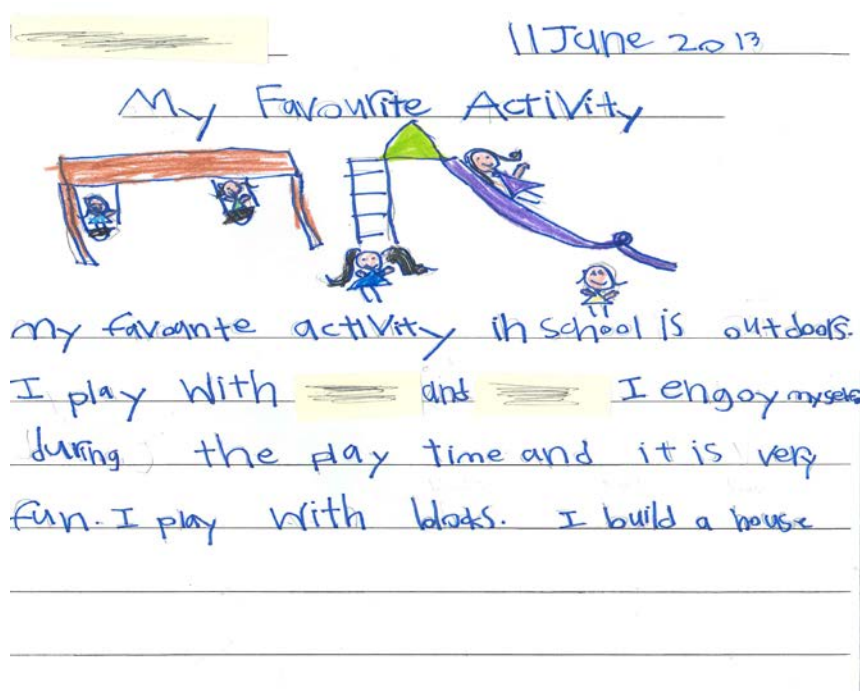 11 June 2013
My Favourite Activity
my favounte activity in school is outdoors.
I play with and I engoy myself
during the play time and it is very
fun. I play with blocks. I build a house